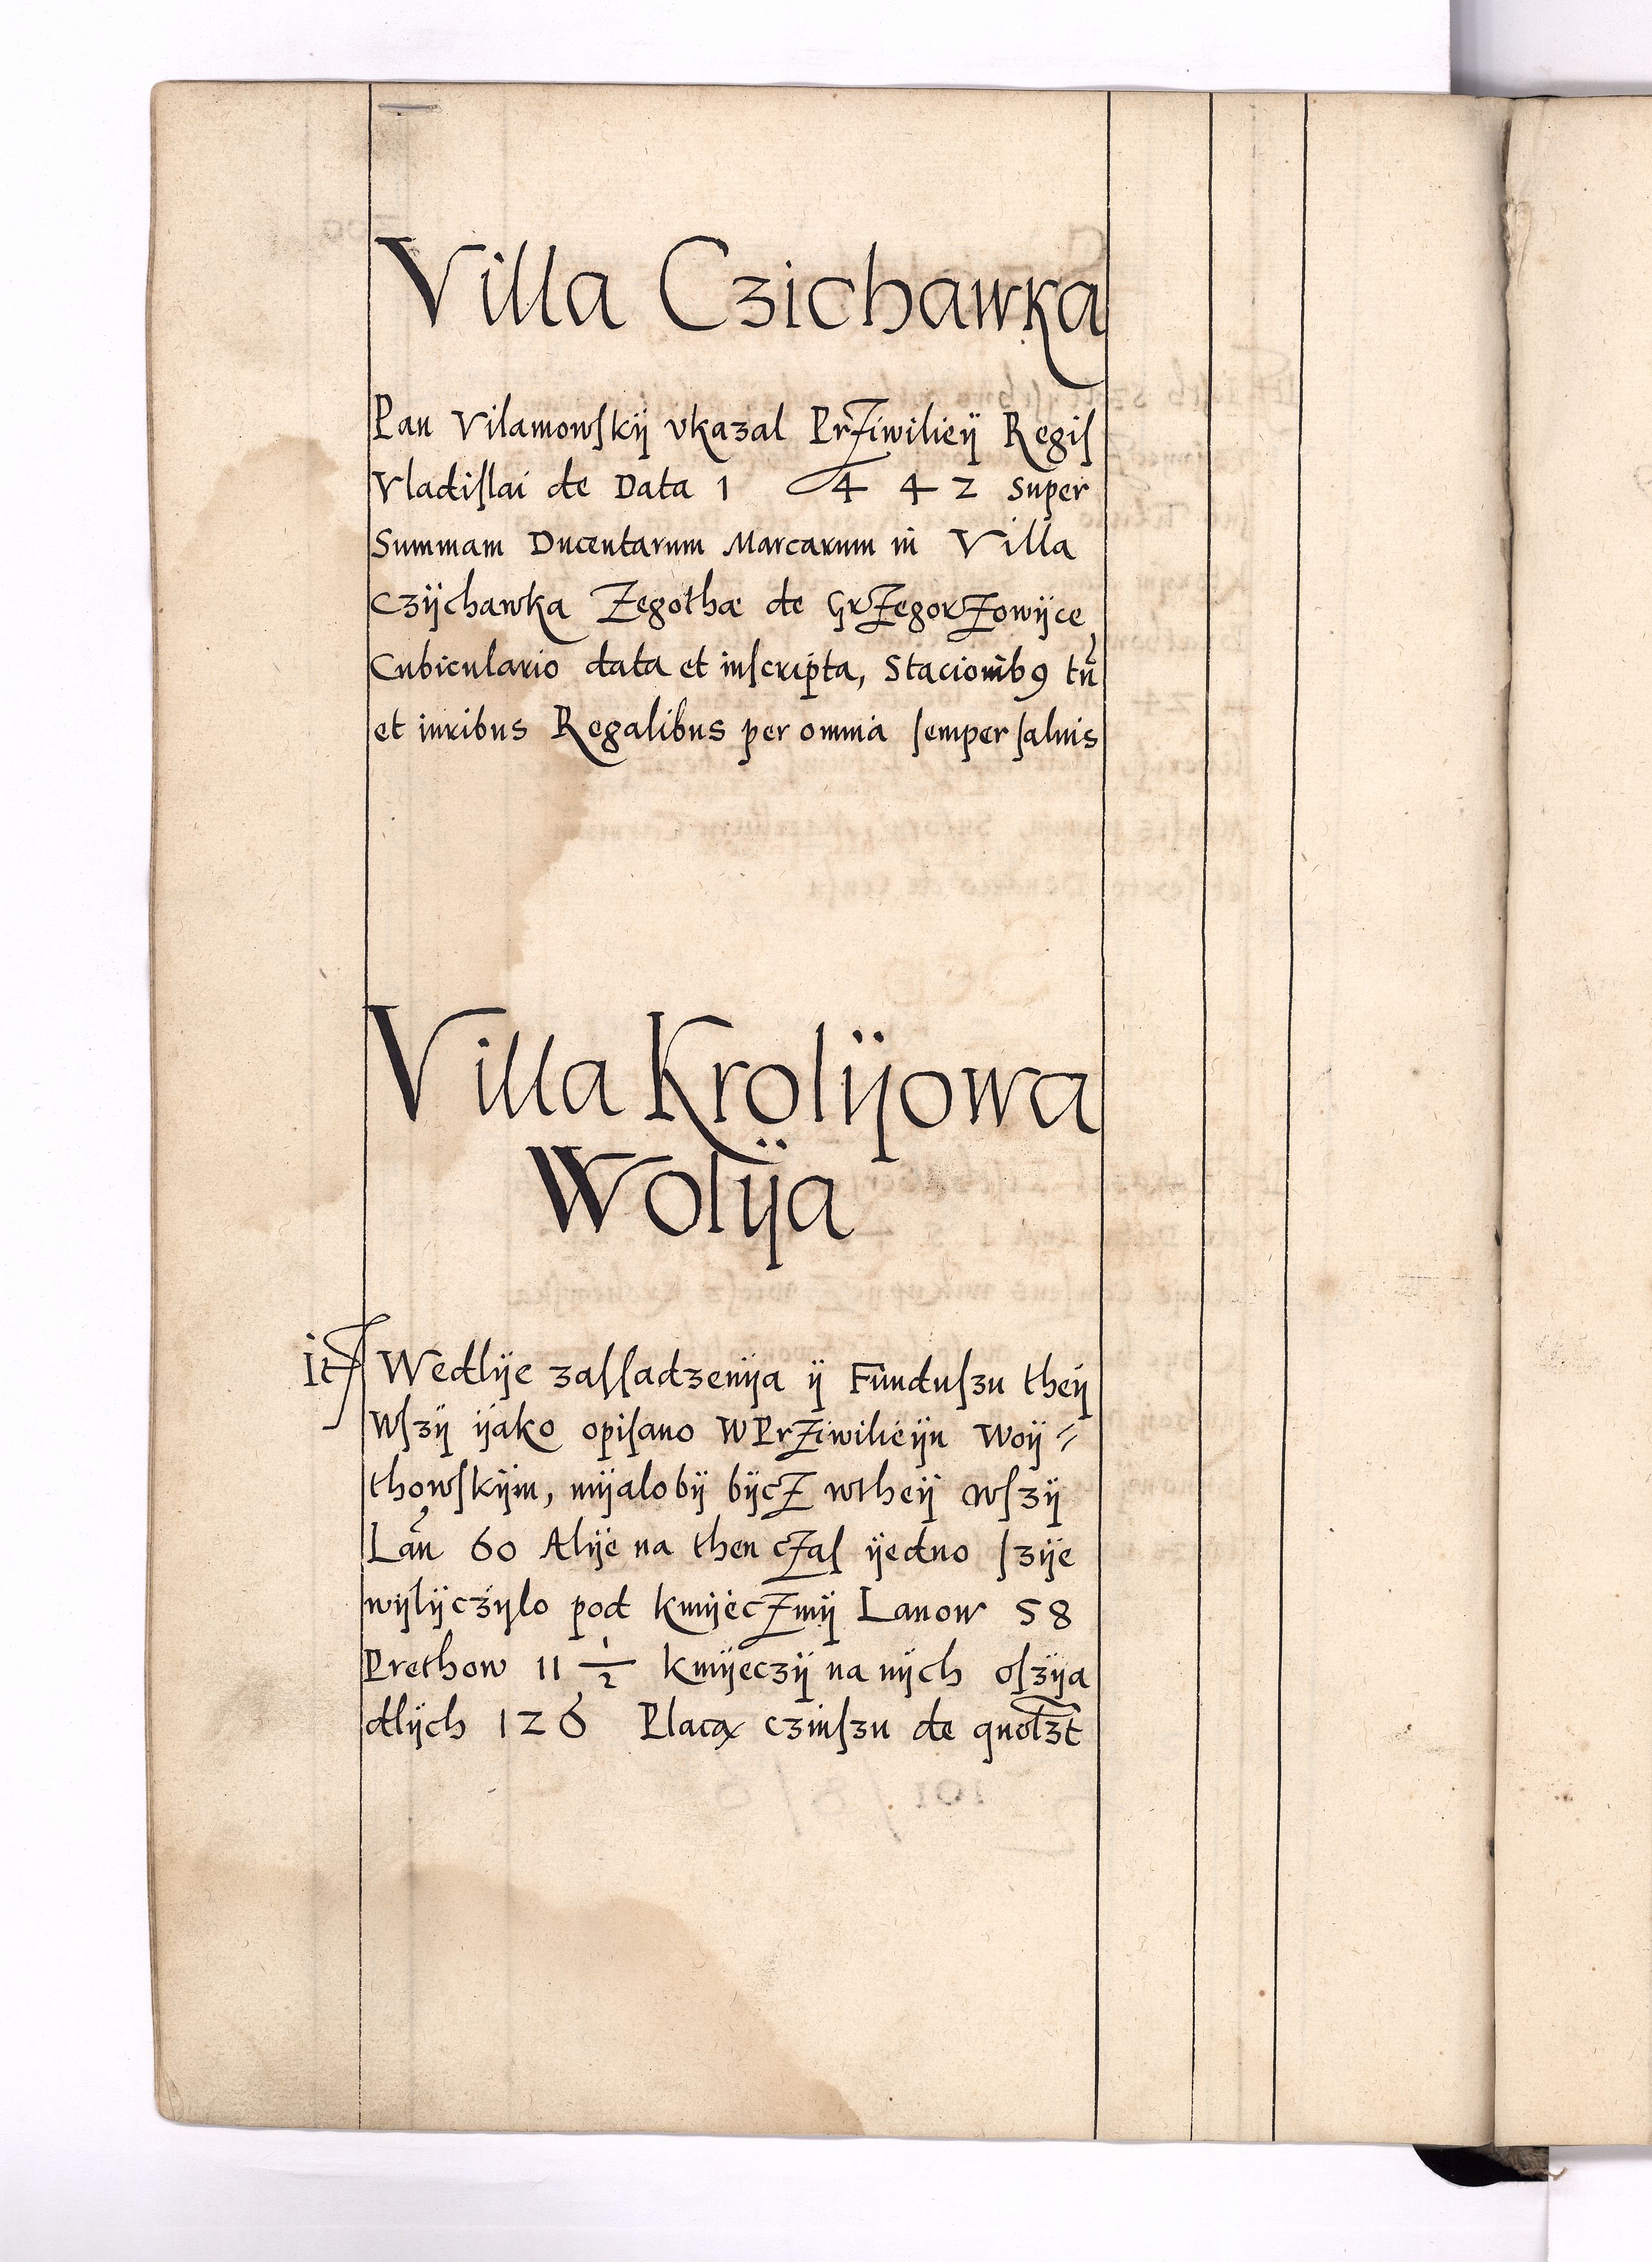 Villa Czichawka
Pan Vilamowſkÿ vkazal Prziwilieÿ Regiſ
Vladiſlai de Data 1 4 4 2 super
Summam Ducentarum Marcarum in Villa
Czÿchawka Zegothæ de Grzegorzowÿce
Cubiculario data et inſcripta, Stacionibꝯ tñ
et iuribus Regalibus per omnia ſemper ſaluis
Villa Krolÿowa
Wolÿa
Wedlÿe zaſſadzenÿa ÿ Funduſzu theÿ
Wſzÿ ÿako opiſano W Prziwilieÿu Woÿ⸗
thowſkÿm, mÿalo bÿ bÿcz w theÿ wſzÿ
Lan 60 Alÿe na then czaſ ÿedno ſzÿe
wÿlÿczÿlo pod kmÿeczmÿ Lanow 58
Prethow 11 1/2 kmÿeczÿ na nÿch oſzÿa
dlÿch 126 Placą czinſzu de quolꝫt